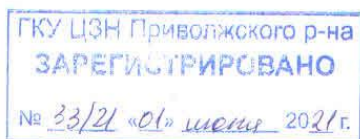 ГКУ ЦЗН Приволжского р-на
ЗАРЕГИСТРИРОВАНО
№ 33/21 «01» июня 2021 г.